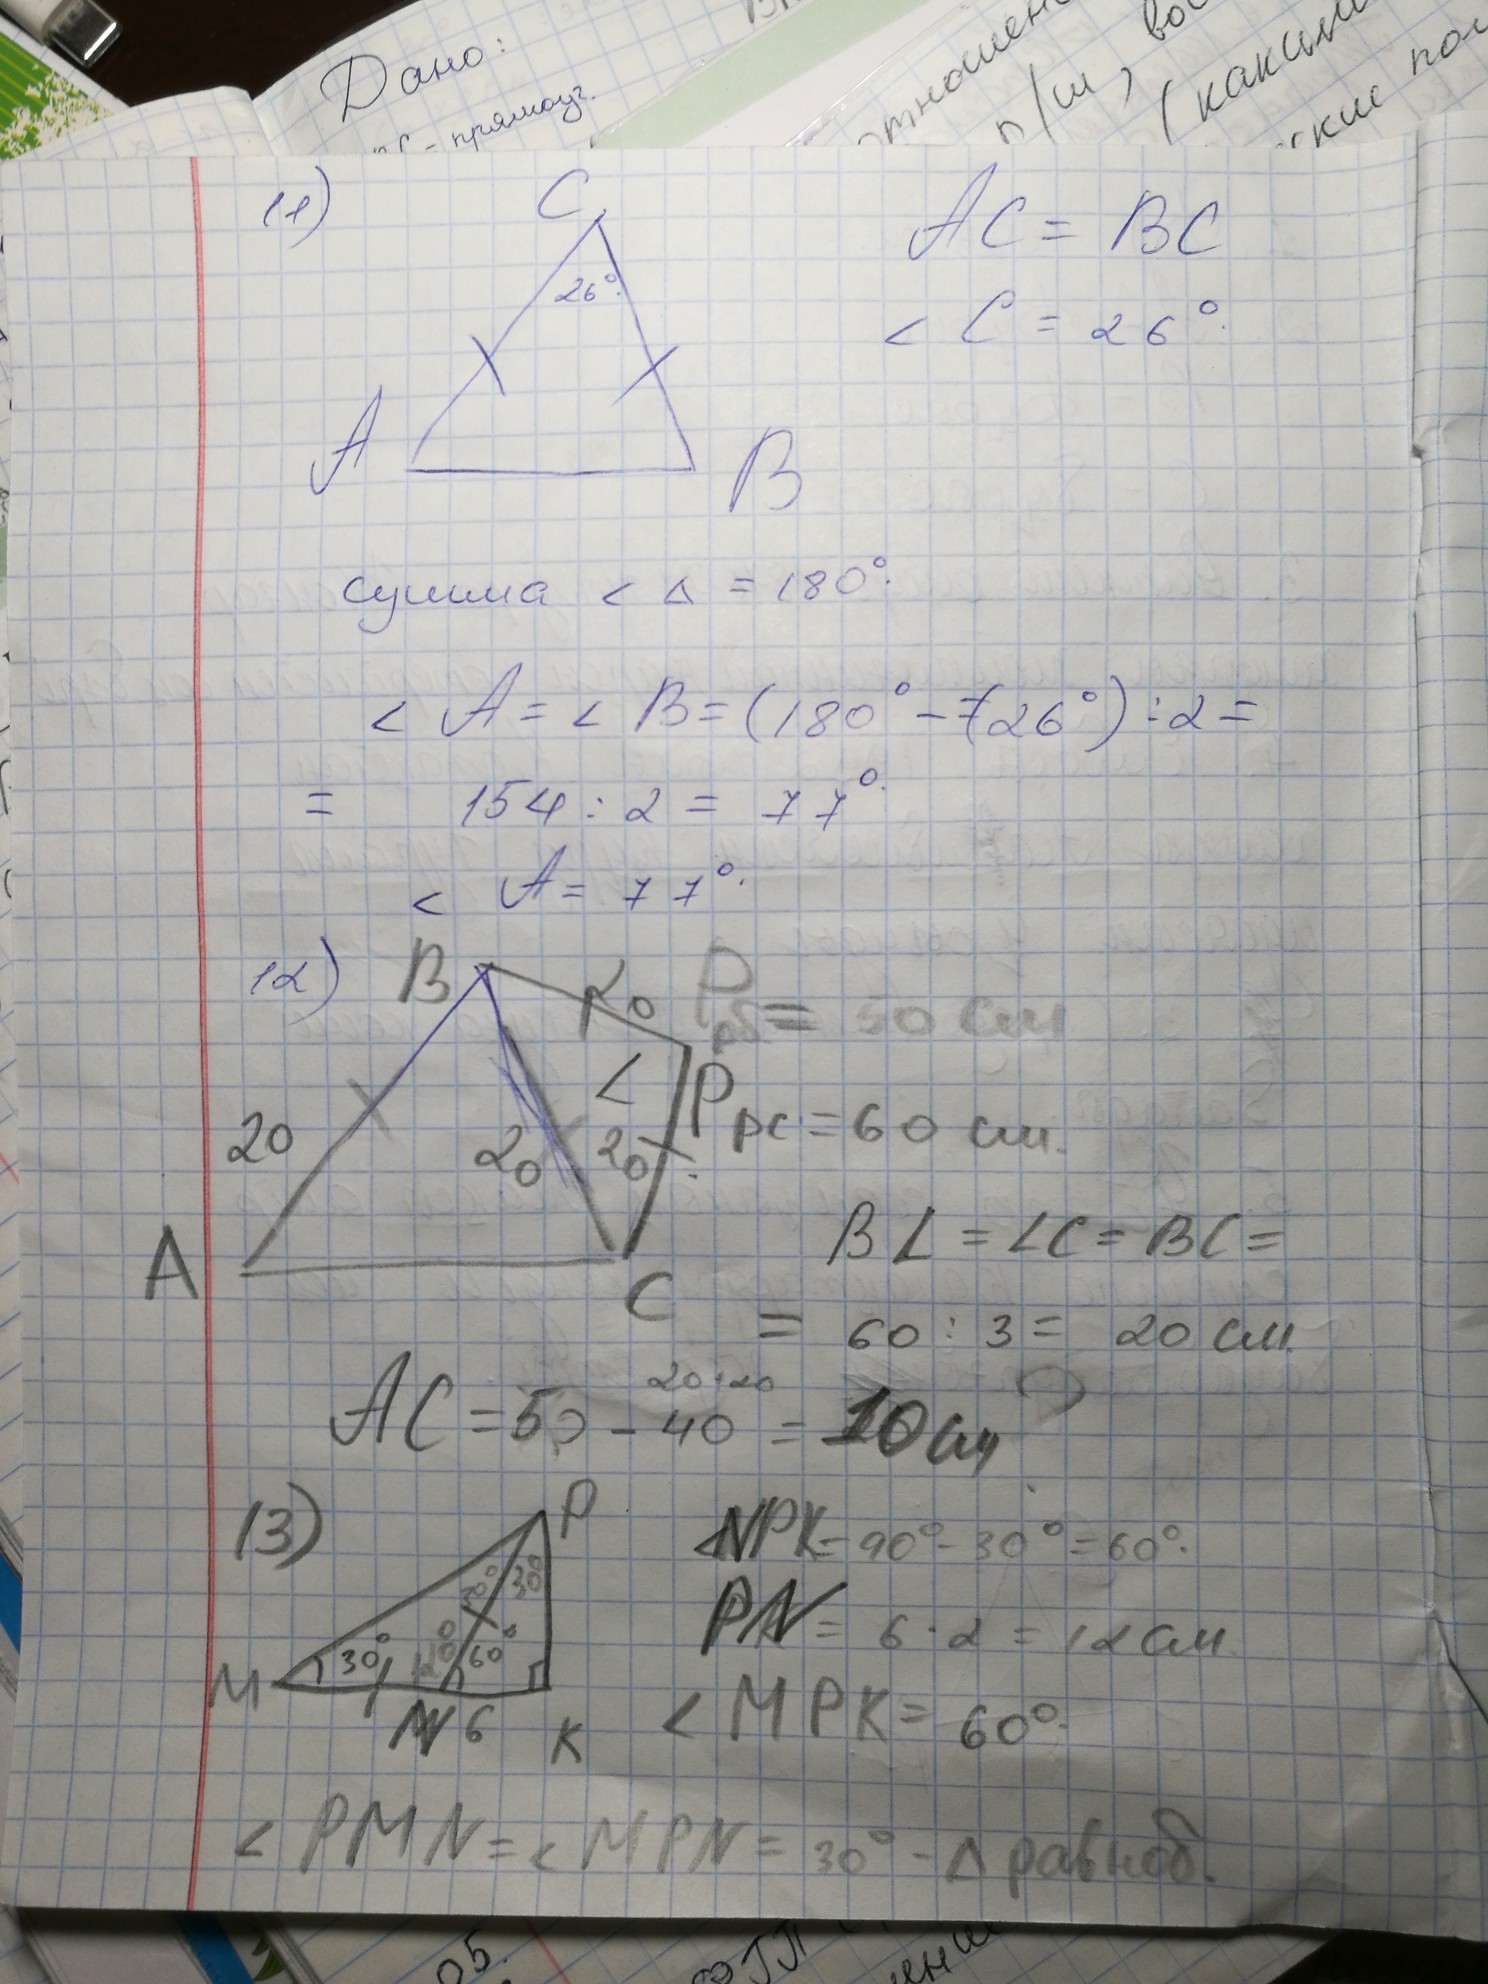 Дано:
прямоуг.
отношен
п/ш,
(каким
ские пол
11)
C
26°.
A
B
AC = BC
< C = 26°.
сумма < Δ = 180°.
< A = < B = (180° - 26°) : 2 =
= 154 : 2 = 77°.
< A = 77°.
12)
B
20
L
20
20
20
A
C
Pрб = 50 см
Pрс = 60 см.
BL = LC = BC =
= 60 : 3 = 20 см.
20+20
AC = 50 - 40 = 10 см
13)
P
30° 30°
M 30° 120° 60°
N 6 K
<NPK = 90° - 30° = 60°.
PN = 6 · 2 = 12 см.
< MPK = 60°.
< PMN = < MPN = 30° - Δ равноб.
05.